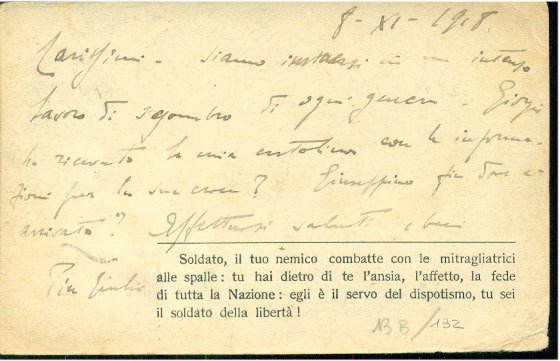 8-XI-1918.
Carissimi - siamo immersi in un intenso
lavoro di sgombro di ogni genere. Giorgio
ha ricevuto la mia cartolina con le informa-
zioni per la sua croce? Giuseppino fin dove è
arrivato? Affettuosi saluti e baci
Giulio
Soldato, il tuo nemico combatte con le mitragliatrici
alle spalle: tu hai dietro di te l'ansia, l'affetto, la fede
di tutta la Nazione: egli è il servo del dispotismo, tu sei
il soldato della libertà!
BB/132